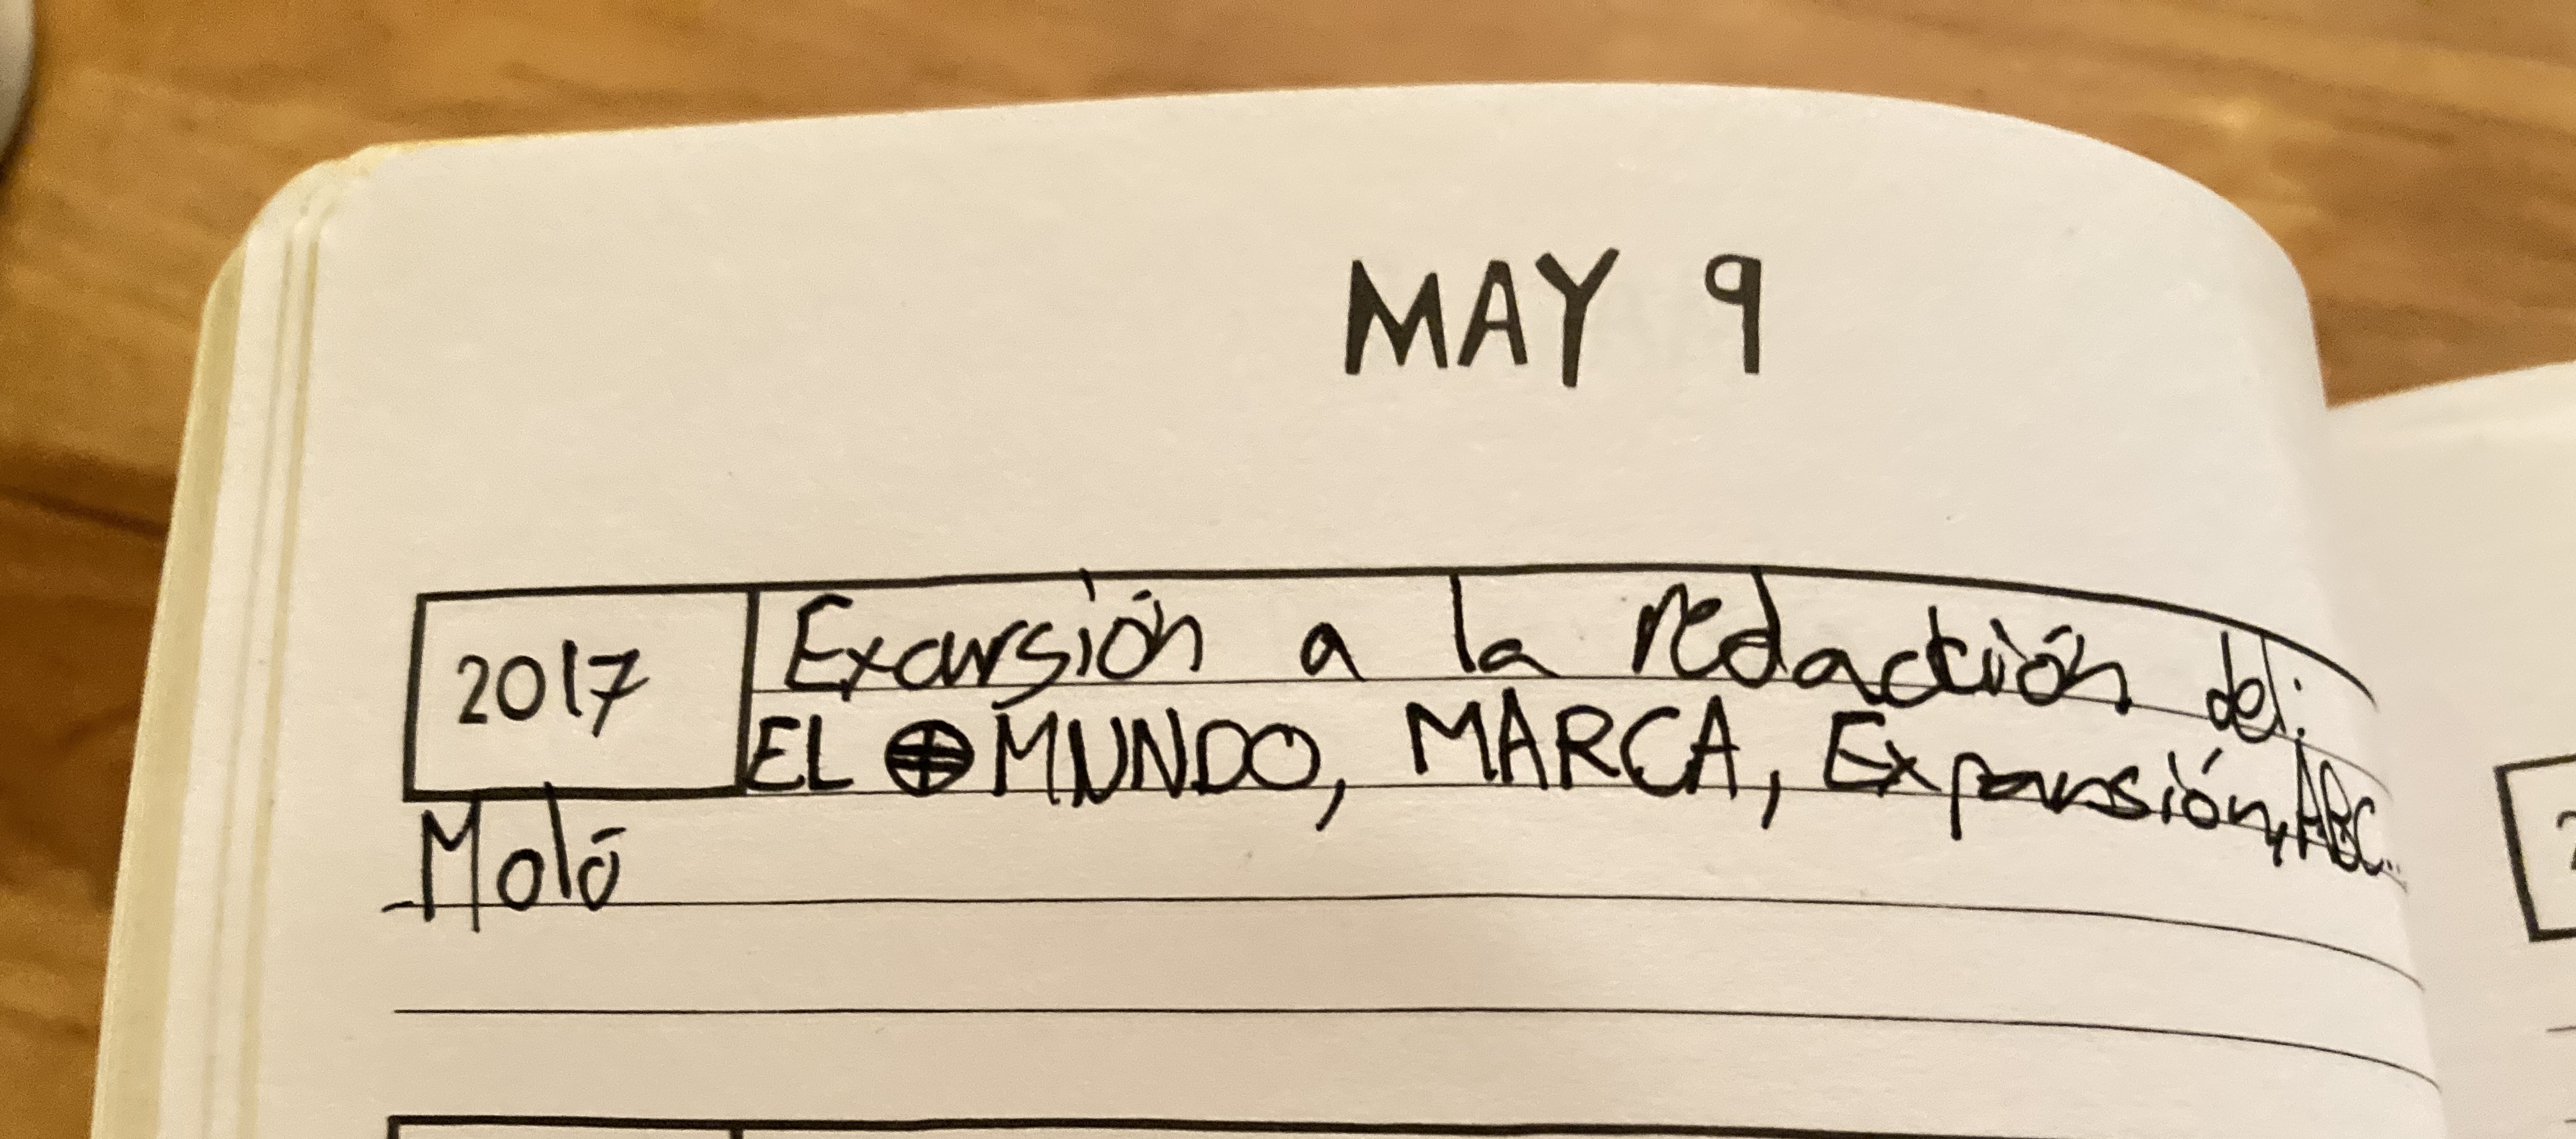 MAY 9
2017 Excursión a la redacción del:
EL ⊕ MUNDO, MARCA, Expansión, ABC...
Moló